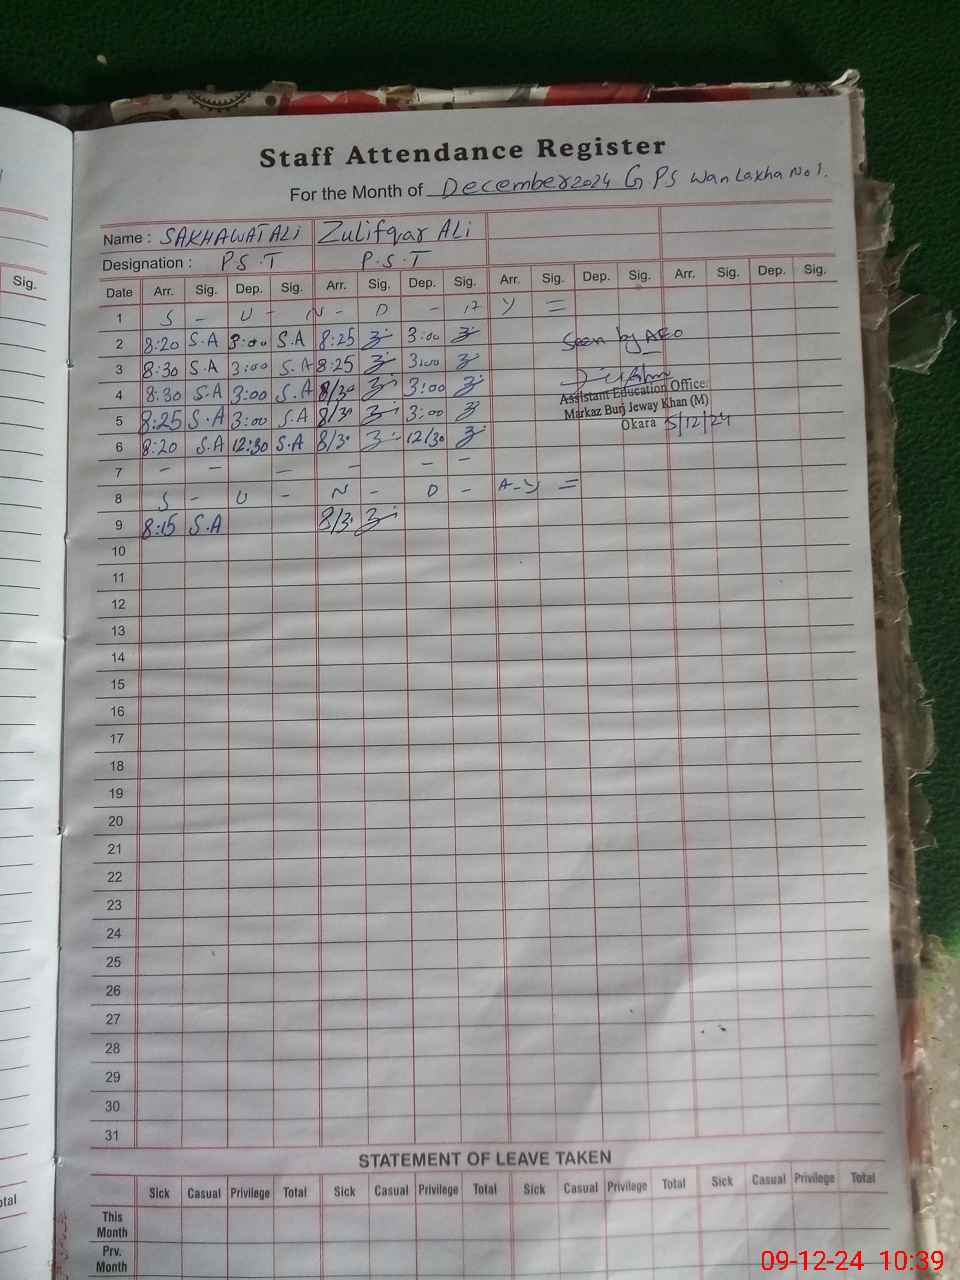 Staff Attendance Register
For the Month of December 2024 G PS Wan Laxha No 1.
Name : SAKHAWAT ALi Zulifqar ALi
Designation : P S . T P . S . T
Sig.
Date Arr. Sig. Dep. Sig. Arr. Sig. Dep. Sig. Arr. Sig. Dep. Sig. Arr. Sig. Dep. Sig.
1 S - U - N - D - A Y =
2 8:20 S.A 3:00 S.A 8:25 3:00
Seen by AEO
3 8:30 S.A 3:00 S.A 8:25 3:00
4 8:30 S.A 3:00 S.A 8/30 3:00
Assistant Education Officer
Markaz Burj Jeway Khan (M)
5 8:25 S.A 3:00 S.A 8/30 3:00
Okara 5/12/24
6 8:20 S.A 12:30 S.A 8/30 12/30
7 - - - - - -
8 S - U - N - D - A - Y =
9 8:15 S.A 8/30
10
11
12
13
14
15
16
17
18
19
20
21
22
23
24
25
26
27
28
29
30
31
STATEMENT OF LEAVE TAKEN
Sick Casual Privilege Total Sick Casual Privilege Total Sick Casual Privilege Total Sick Casual Privilege Total
This
Month
Prv.
Month
09-12-24 10:39